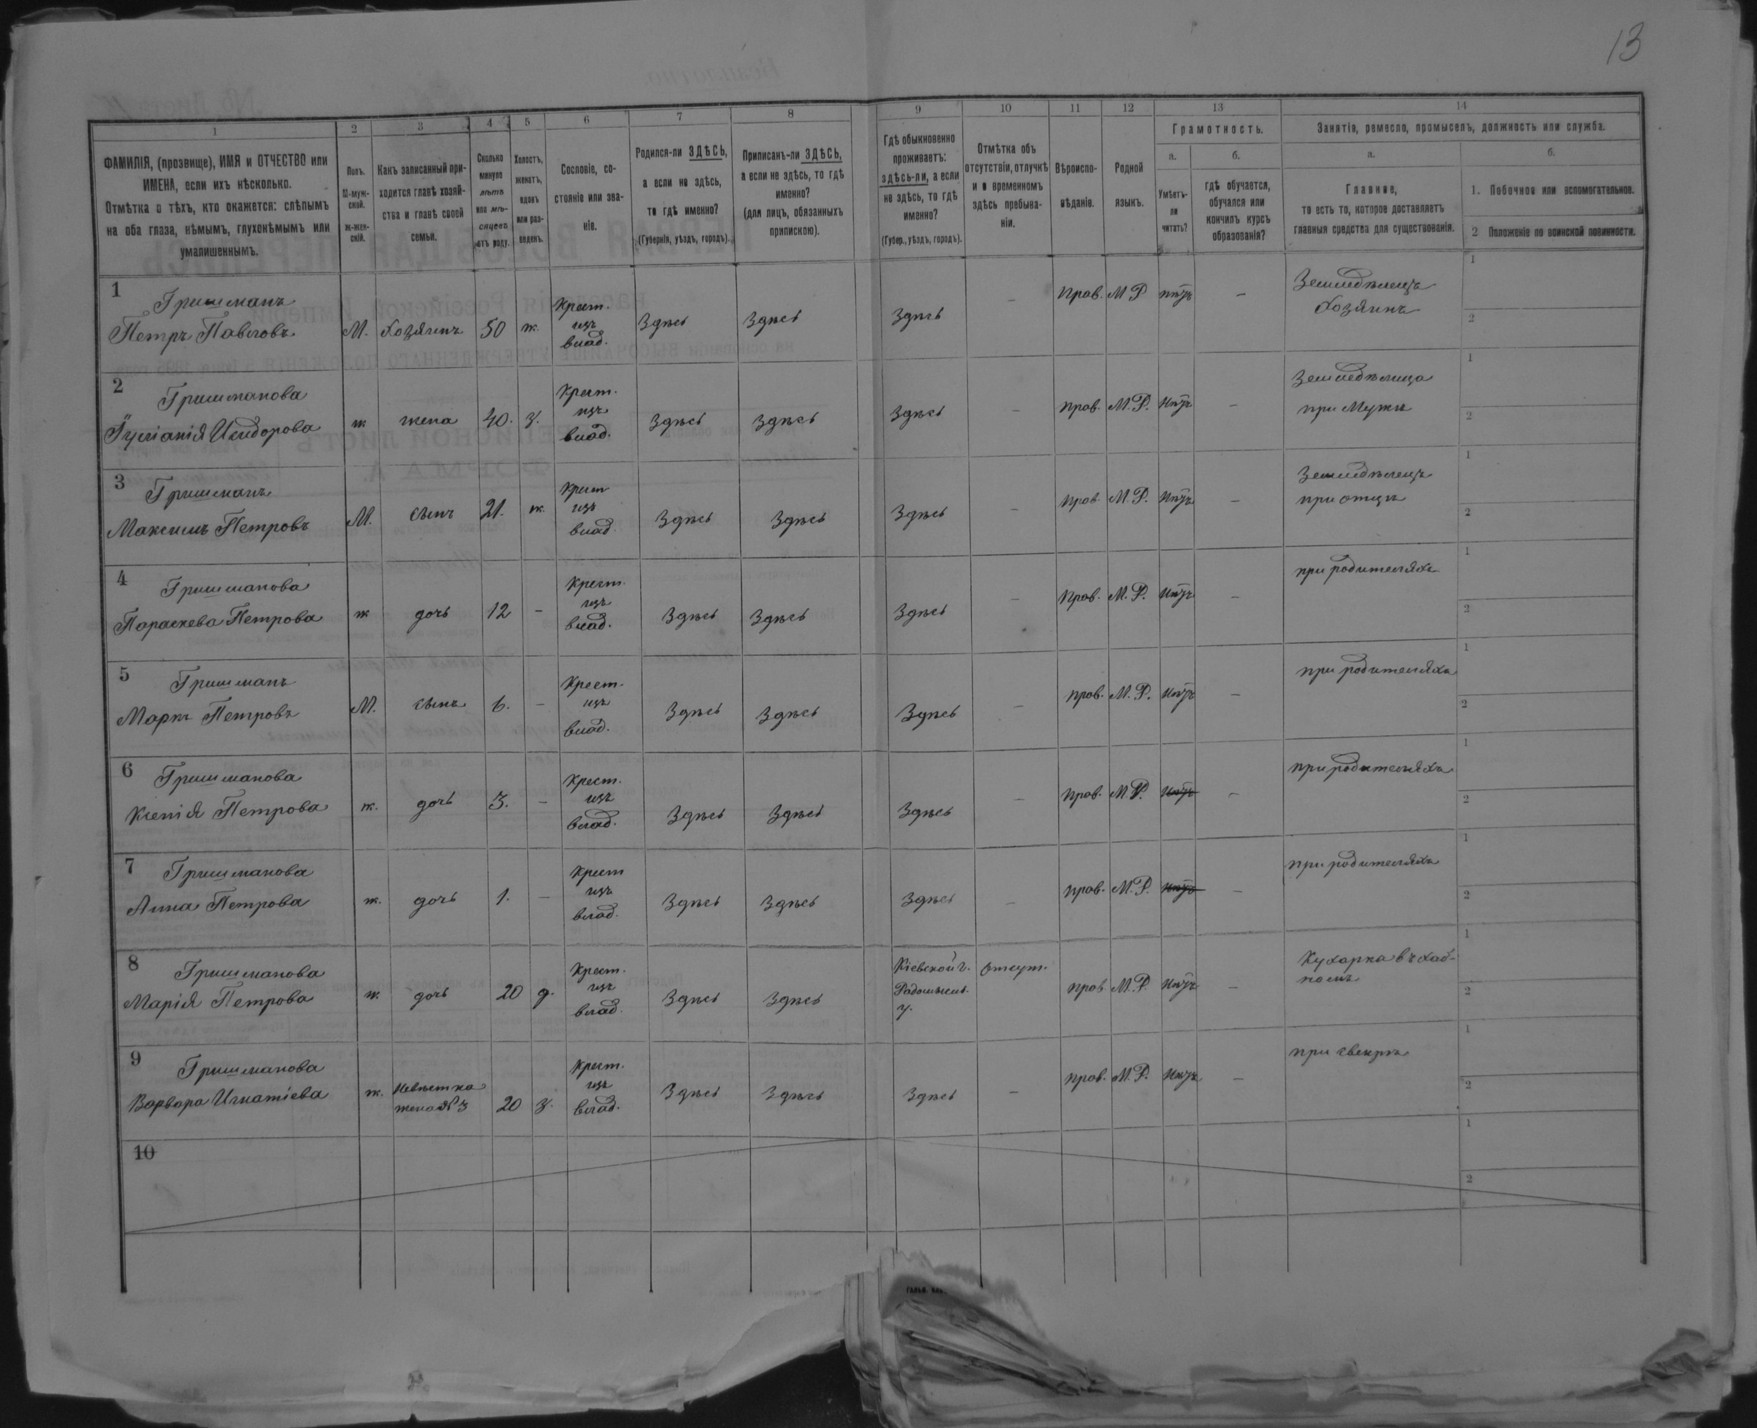 13
1 2 3 4 5 6 7 8 9 10 11 12 13 14
ФАМИЛІЯ, (прозвище), ИМЯ и ОТЧЕСТВО или
ИМЕНА, если ихъ нѣсколько.
Отмѣтка о тѣхъ, кто окажется: слѣпымъ
на оба глаза, нѣмымъ, глухонѣмымъ или
умалишеннымъ.
Полъ.
М-муж-
ской.
Ж-жен-
скій.
Какъ записанный при-
ходится главѣ хозяй-
ства и главѣ своей
семьи.
Сколько
минуло
лѣтъ
или мѣ-
сяцевъ
отъ роду.
Холостъ,
женатъ,
вдовъ
или раз-
веденъ.
Сословіе, со-
стояніе или зва-
ніе.
Родился-ли ЗДѢСЬ,
а если не здѣсь,
то гдѣ именно?
(Губернія, уѣздъ, городъ).
Приписанъ-ли ЗДѢСЬ,
а если не здѣсь, то гдѣ
именно?
(для лицъ, обязанныхъ
припискою).
Гдѣ обыкновенно
проживаетъ:
здѣсь-ли, а если
не здѣсь, то гдѣ
именно?
(Губер., уѣздъ, городъ).
Отмѣтка объ
отсутствіи, отлучкѣ
и о временномъ
здѣсь пребыва-
ніи.
Вѣроиспо-
вѣданіе.
Родной
языкъ.
Грамотность.
а.
Умѣетъ-
ли
читать?
б.
гдѣ обучается,
обучался или
кончилъ курсъ
образованія?
Занятія, ремесло, промыселъ, должность или служба.
а.
Главныя,
то есть то, которое доставляетъ
главныя средства для существованія.
б.
1. Побочное или вспомогательное.
2 Положеніе по воинской повинности.
1 Гришманъ
Петръ Павловъ М. хозяинъ 50 ж. Крест. изъ влад. Здѣсь Здѣсь Здѣсь - Прав. М Р нѣтъ - Земледѣлецъ хозяинъ 1 2
2 Гришманова
Исидорова ж жена 40. з. Крест. изъ влад. Здѣсь Здѣсь Здѣсь - прав. М.Р. нѣтъ - Земледѣлица при мужѣ 1 2
3 Гришманъ
Максимъ Петровъ М. сынъ 21. ж. Крест изъ влад. Здѣсь Здѣсь Здѣсь - прав. М.Р. нѣтъ - Земледѣлецъ при отцѣ 1 2
4 Гришманова
Параскева Петрова ж дочь 12 - Крест. изъ влад. Здѣсь Здѣсь Здѣсь - Прав. М.Р. нѣтъ - при родителяхъ 1 2
5 Гришманъ
Маркъ Петровъ М. сынъ 6. - Крест. изъ влад. Здѣсь Здѣсь Здѣсь - прав. М.Р. нѣтъ - при родителяхъ 1 2
6 Гришманова
Ксенія Петрова ж. дочь 3. - Крест. изъ влад. Здѣсь Здѣсь Здѣсь - прав. М Р. нѣтъ - при родителяхъ 1 2
7 Гришманова
Анна Петрова ж. дочь 1. - Крест изъ влад. Здѣсь Здѣсь Здѣсь - прав. М.Р. нѣтъ - при родителяхъ 1 2
8 Гришманова
Марія Петрова ж. дочь 20 д. Крест. изъ влад. Здѣсь Здѣсь Кіевской г. Радомысл. у. отсут. прав М.Р. нѣтъ - Кухарка въ Хаб-номъ 1 2
9 Гришманова
Варвара Игнатіева ж. невѣстка жена №3 20 з. Крест. изъ влад. Здѣсь Здѣсь Здѣсь - прав. М.Р. нѣтъ - при свекрѣ 1 2
10 1 2